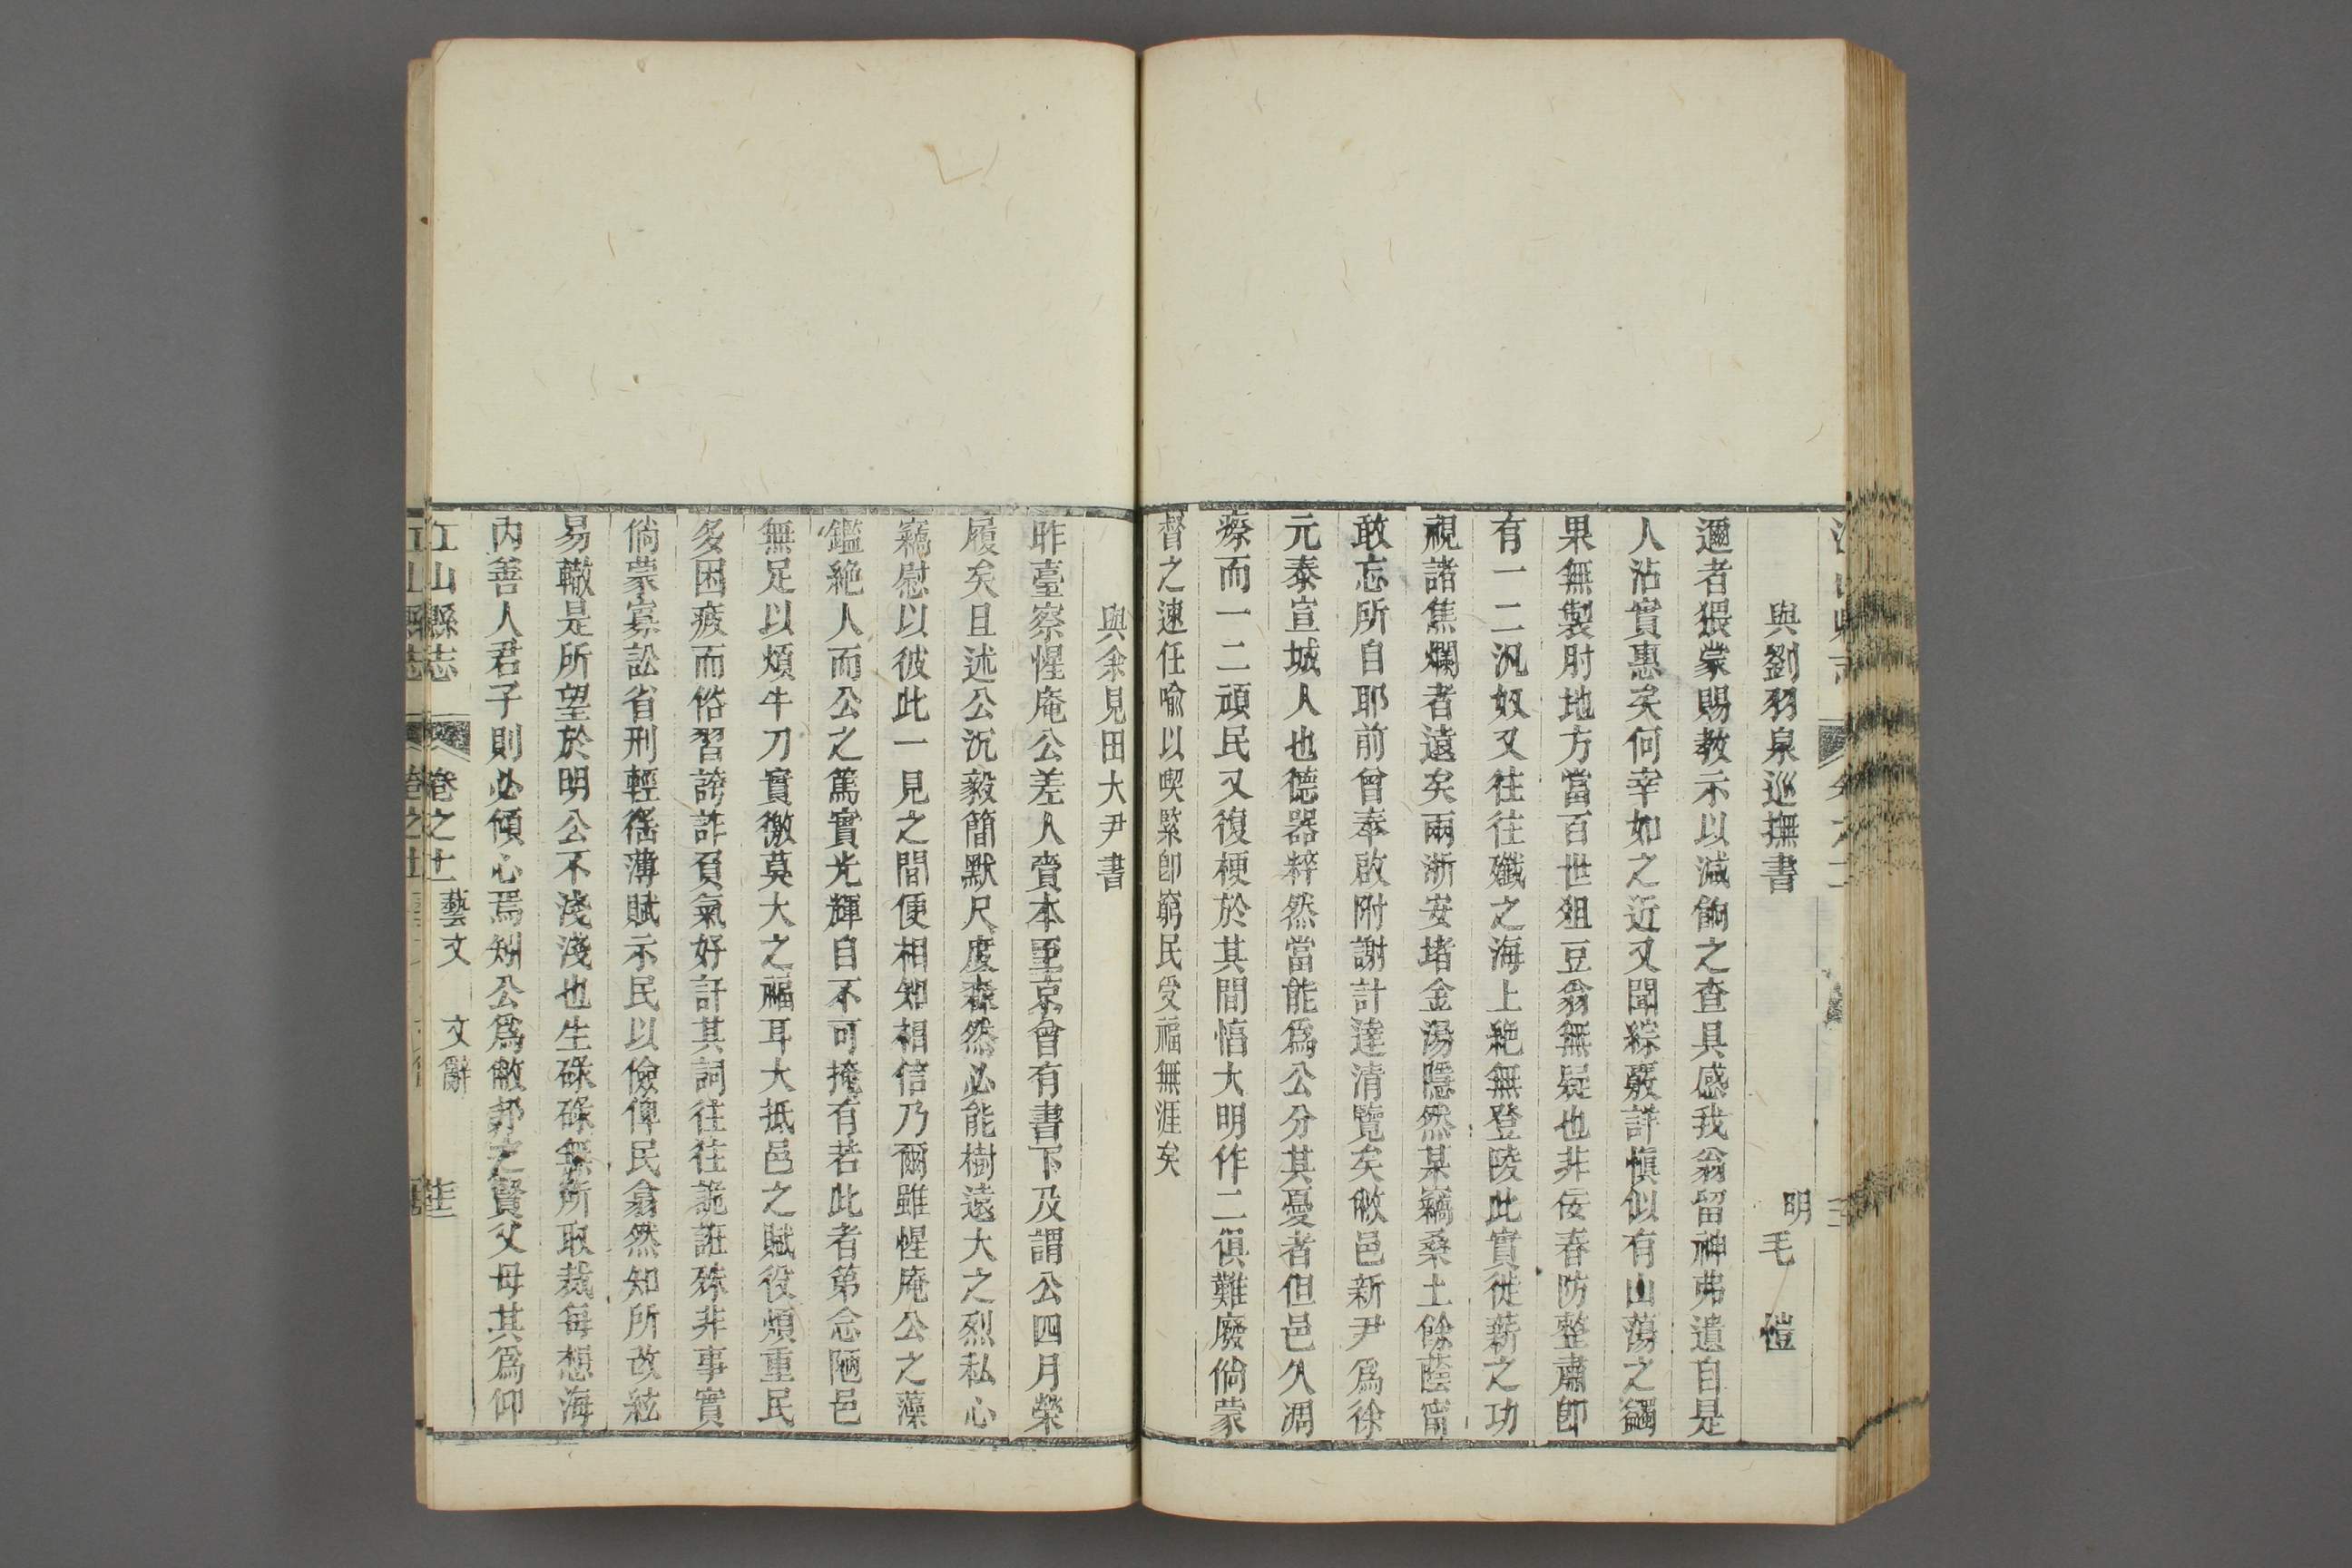 與劉羽泉巡撫書
明毛　愷
邇者猥蒙賜教示以減餉之查具感我翁留神弗遺自是
人沾實惠矣何幸如之近又聞綜覈詳慎似有山蕩之蠲
果無製肘地方當百世俎豆翁無疑也非佞春防整肅卽
有一二汛奴又往往殲之海上絶無登陵此實徙薪之功
視諸焦爛者遠矣兩浙安堵金湯隱然某竊桑土餘蔭甯
敢忘所自耶前曾奉啟附謝計達清覽矣敝邑新尹爲徐
元泰宣城人也德器粹然當能爲公分其憂者但邑久凋
瘵而一二頑民又復梗於其間惜大明作二俱難廢倘蒙
督之速任喻以喫緊卽窮民受福無涯矣
與余見田大尹書
昨臺察惺庵公差人賫本至京曾有書下及謂公四月榮
履矣且述公沉毅簡默尺度森然必能樹遠大之烈私心
竊慰以彼此一見之間便相知相信乃爾雖惺庵公之藻
鑑絶人而公之篤實光輝自不可掩有若此者第念陋邑
無足以煩牛刀實徼莫大之福耳大抵邑之賦役煩重民
多困疲而俗習誇詐負氣好訐其詞往往詭誑殊非事實
倘蒙寡訟省刑輕徭薄賦示民以儉俾民翕然知所改絃
易轍是所望於明公不淺淺也生碌碌無所取裁每想海
內善人君子則必傾心焉矧公爲敝邦之賢父母其爲仰
江山縣志　卷之十一　藝文　文辭